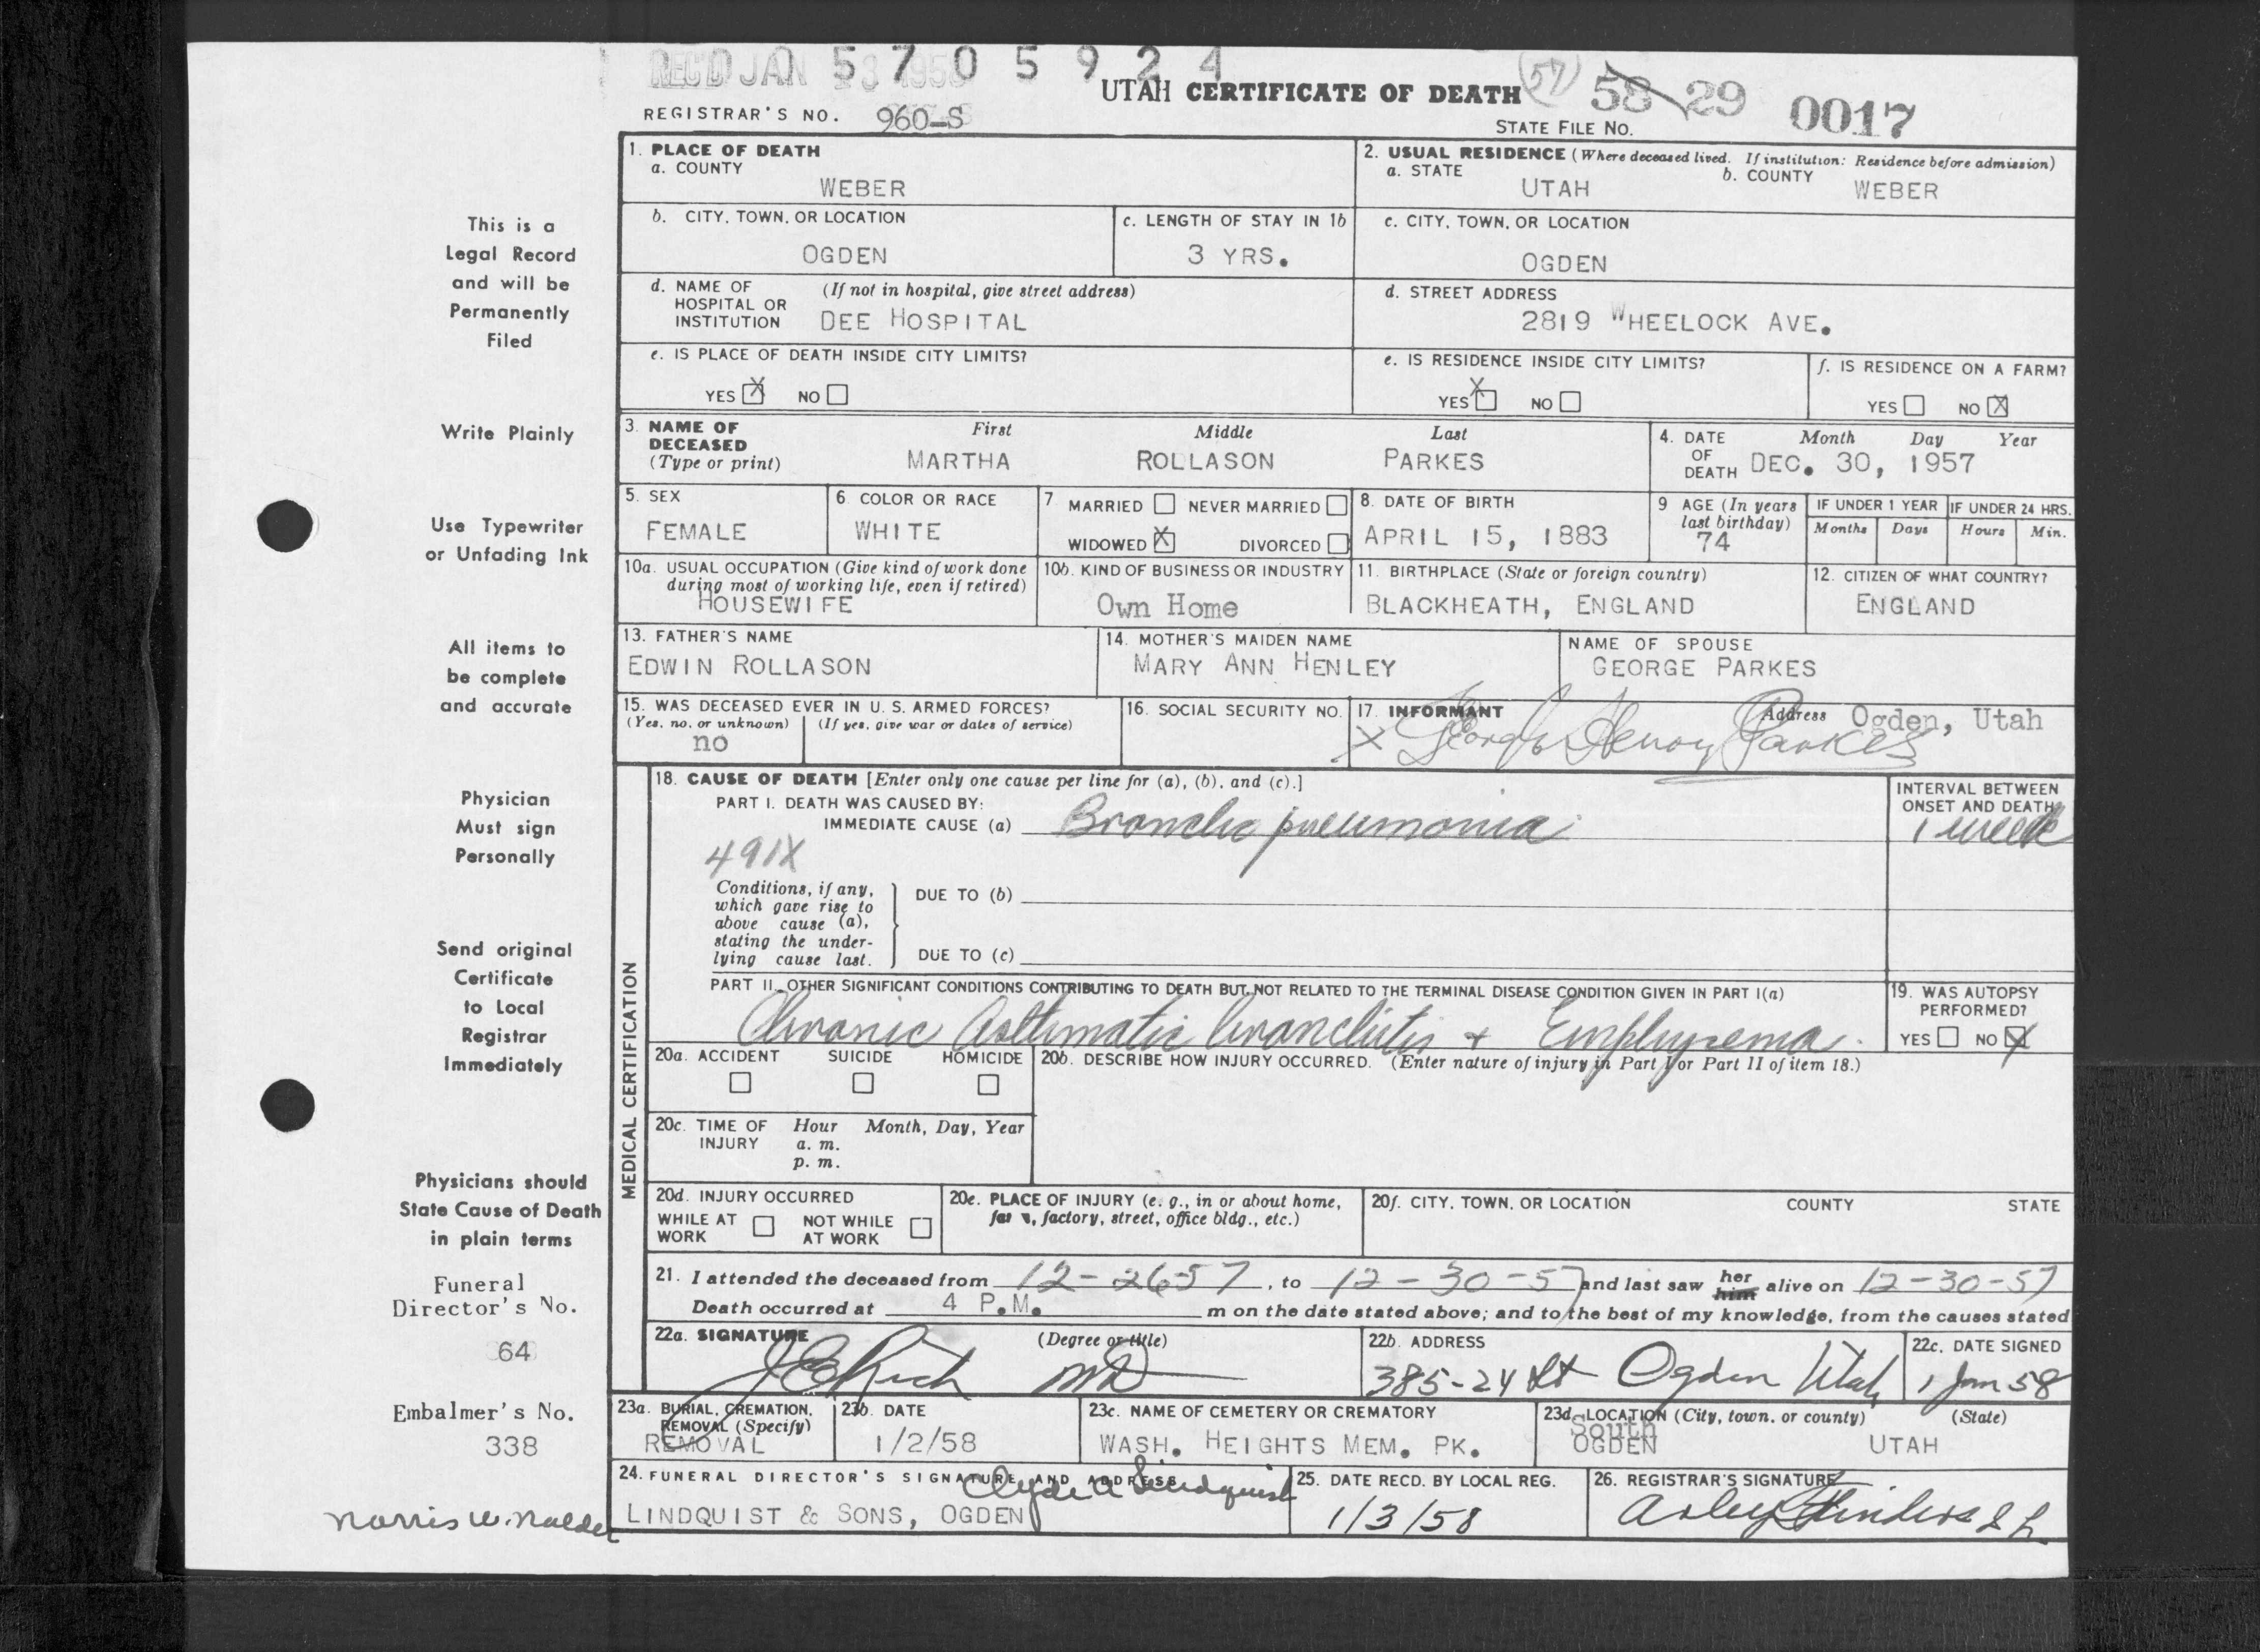 REC'D JAN 1958 5 7 0 5 9 2 4
UTAH CERTIFICATE OF DEATH (57) 58 29 0017
REGISTRAR'S NO. 960-S STATE FILE NO.
1. PLACE OF DEATH
a. COUNTY
WEBER
2. USUAL RESIDENCE (Where deceased lived. If institution: Residence before admission)
a. STATE UTAH b. COUNTY WEBER
b. CITY, TOWN, OR LOCATION
OGDEN
c. LENGTH OF STAY IN 1b
3 YRS.
c. CITY, TOWN, OR LOCATION
OGDEN
d. NAME OF HOSPITAL OR INSTITUTION (If not in hospital, give street address)
DEE HOSPITAL
d. STREET ADDRESS
2819 WHEELOCK AVE.
e. IS PLACE OF DEATH INSIDE CITY LIMITS?
YES X NO
e. IS RESIDENCE INSIDE CITY LIMITS?
YES X NO
f. IS RESIDENCE ON A FARM?
YES NO X
3. NAME OF DECEASED (Type or print)
First Middle Last
MARTHA ROLLASON PARKES
4. DATE OF DEATH Month Day Year
DEC. 30, 1957
5. SEX
FEMALE
6. COLOR OR RACE
WHITE
7. MARRIED NEVER MARRIED
WIDOWED X DIVORCED
8. DATE OF BIRTH
APRIL 15, 1883
9 AGE (In years last birthday)
74
IF UNDER 1 YEAR IF UNDER 24 HRS.
Months Days Hours Min.
10a. USUAL OCCUPATION (Give kind of work done during most of working life, even if retired)
HOUSEWIFE
10b. KIND OF BUSINESS OR INDUSTRY
Own Home
11. BIRTHPLACE (State or foreign country)
BLACKHEATH, ENGLAND
12. CITIZEN OF WHAT COUNTRY?
ENGLAND
13. FATHER'S NAME
EDWIN ROLLASON
14. MOTHER'S MAIDEN NAME
MARY ANN HENLEY
NAME OF SPOUSE
GEORGE PARKES
15. WAS DECEASED EVER IN U. S. ARMED FORCES?
(Yes, no, or unknown) (If yes, give war or dates of service)
no
16. SOCIAL SECURITY NO.
17. INFORMANT Address Ogden, Utah
X George Henry Parkes
MEDICAL CERTIFICATION
18. CAUSE OF DEATH [Enter only one cause per line for (a), (b), and (c).]
PART I. DEATH WAS CAUSED BY:
IMMEDIATE CAUSE (a) Broncho pneumonia
INTERVAL BETWEEN ONSET AND DEATH
1 week
491X
Conditions, if any, which gave rise to above cause (a), stating the underlying cause last.
DUE TO (b)
DUE TO (c)
PART II. OTHER SIGNIFICANT CONDITIONS CONTRIBUTING TO DEATH BUT NOT RELATED TO THE TERMINAL DISEASE CONDITION GIVEN IN PART I(a)
Chronic Asthmatic bronchitis + Emphysema.
19. WAS AUTOPSY PERFORMED?
YES NO X
20a. ACCIDENT SUICIDE HOMICIDE
20b. DESCRIBE HOW INJURY OCCURRED. (Enter nature of injury in Part I or Part II of item 18.)
20c. TIME OF INJURY Hour Month, Day, Year
a. m.
p. m.
20d. INJURY OCCURRED
WHILE AT WORK NOT WHILE AT WORK
20e. PLACE OF INJURY (e. g., in or about home, farm, factory, street, office bldg., etc.)
20f. CITY, TOWN, OR LOCATION COUNTY STATE
21. I attended the deceased from 12-26-57, to 12-30-57 and last saw her him alive on 12-30-57
Death occurred at 4 P.M. m on the date stated above; and to the best of my knowledge, from the causes stated
22a. SIGNATURE (Degree or title)
J E Rich MD
22b. ADDRESS
385-24 St Ogden Utah
22c. DATE SIGNED
1 Jan 58
23a. BURIAL, CREMATION, REMOVAL (Specify)
REMOVAL
23b. DATE
1/2/58
23c. NAME OF CEMETERY OR CREMATORY
WASH. HEIGHTS MEM. PK.
23d. LOCATION (City, town, or county) (State)
South
OGDEN UTAH
24. FUNERAL DIRECTOR'S SIGNATURE AND ADDRESS
Clyde A Lindquist
LINDQUIST & SONS, OGDEN
25. DATE RECD. BY LOCAL REG.
1/3/58
26. REGISTRAR'S SIGNATURE
This is a
Legal Record
and will be
Permanently
Filed
Write Plainly
Use Typewriter
or Unfading Ink
All items to
be complete
and accurate
Physician
Must sign
Personally
Send original
Certificate
to Local
Registrar
Immediately
Physicians should
State Cause of Death
in plain terms
Funeral
Director's No.
64
Embalmer's No.
338
Norris W. Nalder